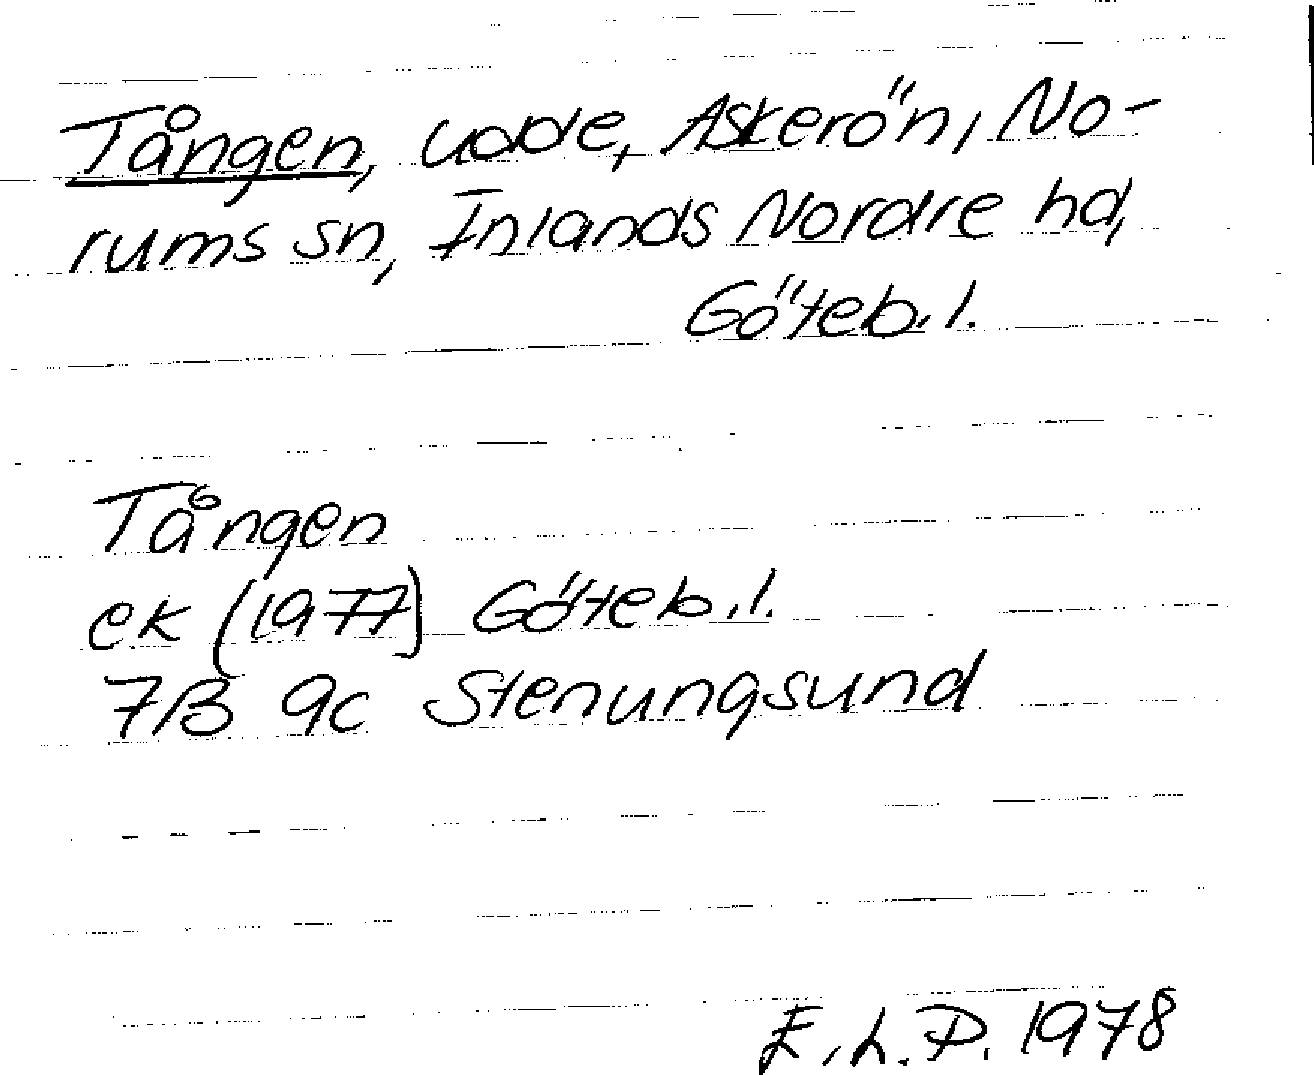 Tången, udde, Askerön, No-
rums sn, Inlands Nordre hd,
Göteb. l.
Tången
ek (1977) Göteb. l.
7B 9c Stenungsund
E. L. P. 1978